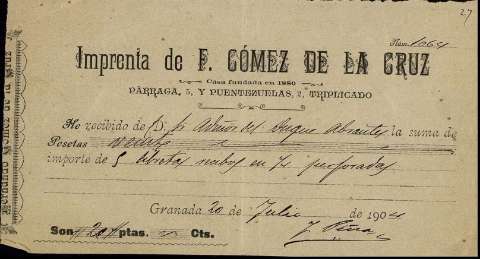 27
Núm. 1064
Imprenta de F. GÓMEZ DE LA CRUZ
Casa fundada en 1880
PÁRRAGA, 5, Y PUENTEZUELAS, 2, TRIPLICADO
He recibido de D. Admor del Duque Abrantes la suma de
Pesetas veinte
importe de 5 libretas en perforadas
Granada 20 de Julio de 1904
Son # 20 # ptas. Cts.